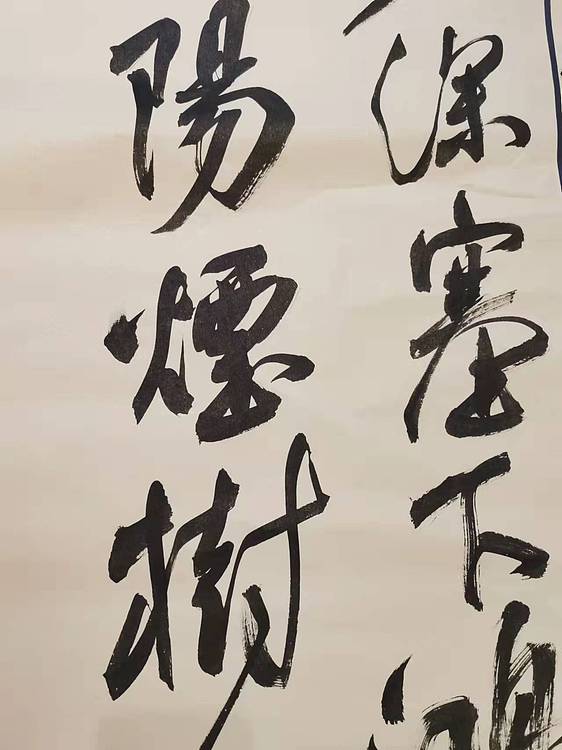 深塞下
陽煙樹